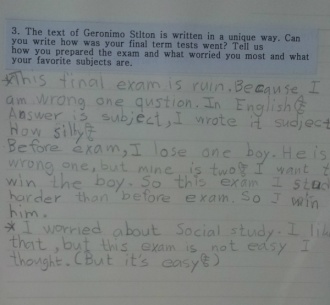 3. The text of Geronimo Stilton is written in a unique way. Can
you write how was your final term tests went? Tell us
how you prepared the exam and what worried you most and what
your favorite subjects are.
*This final exam is ruin. Because I
am wrong one qustion. In English
Answer is subject, I wrote it sudject
How silly
Before exam, I lose one boy. He is
wrong one, but mine is two I want t
win the boy. So this exam I stud
harder than before exam. So I win
him.
* I worried about Social study. I lik
that, but this exam is not easy I
thought. (But it's easy)